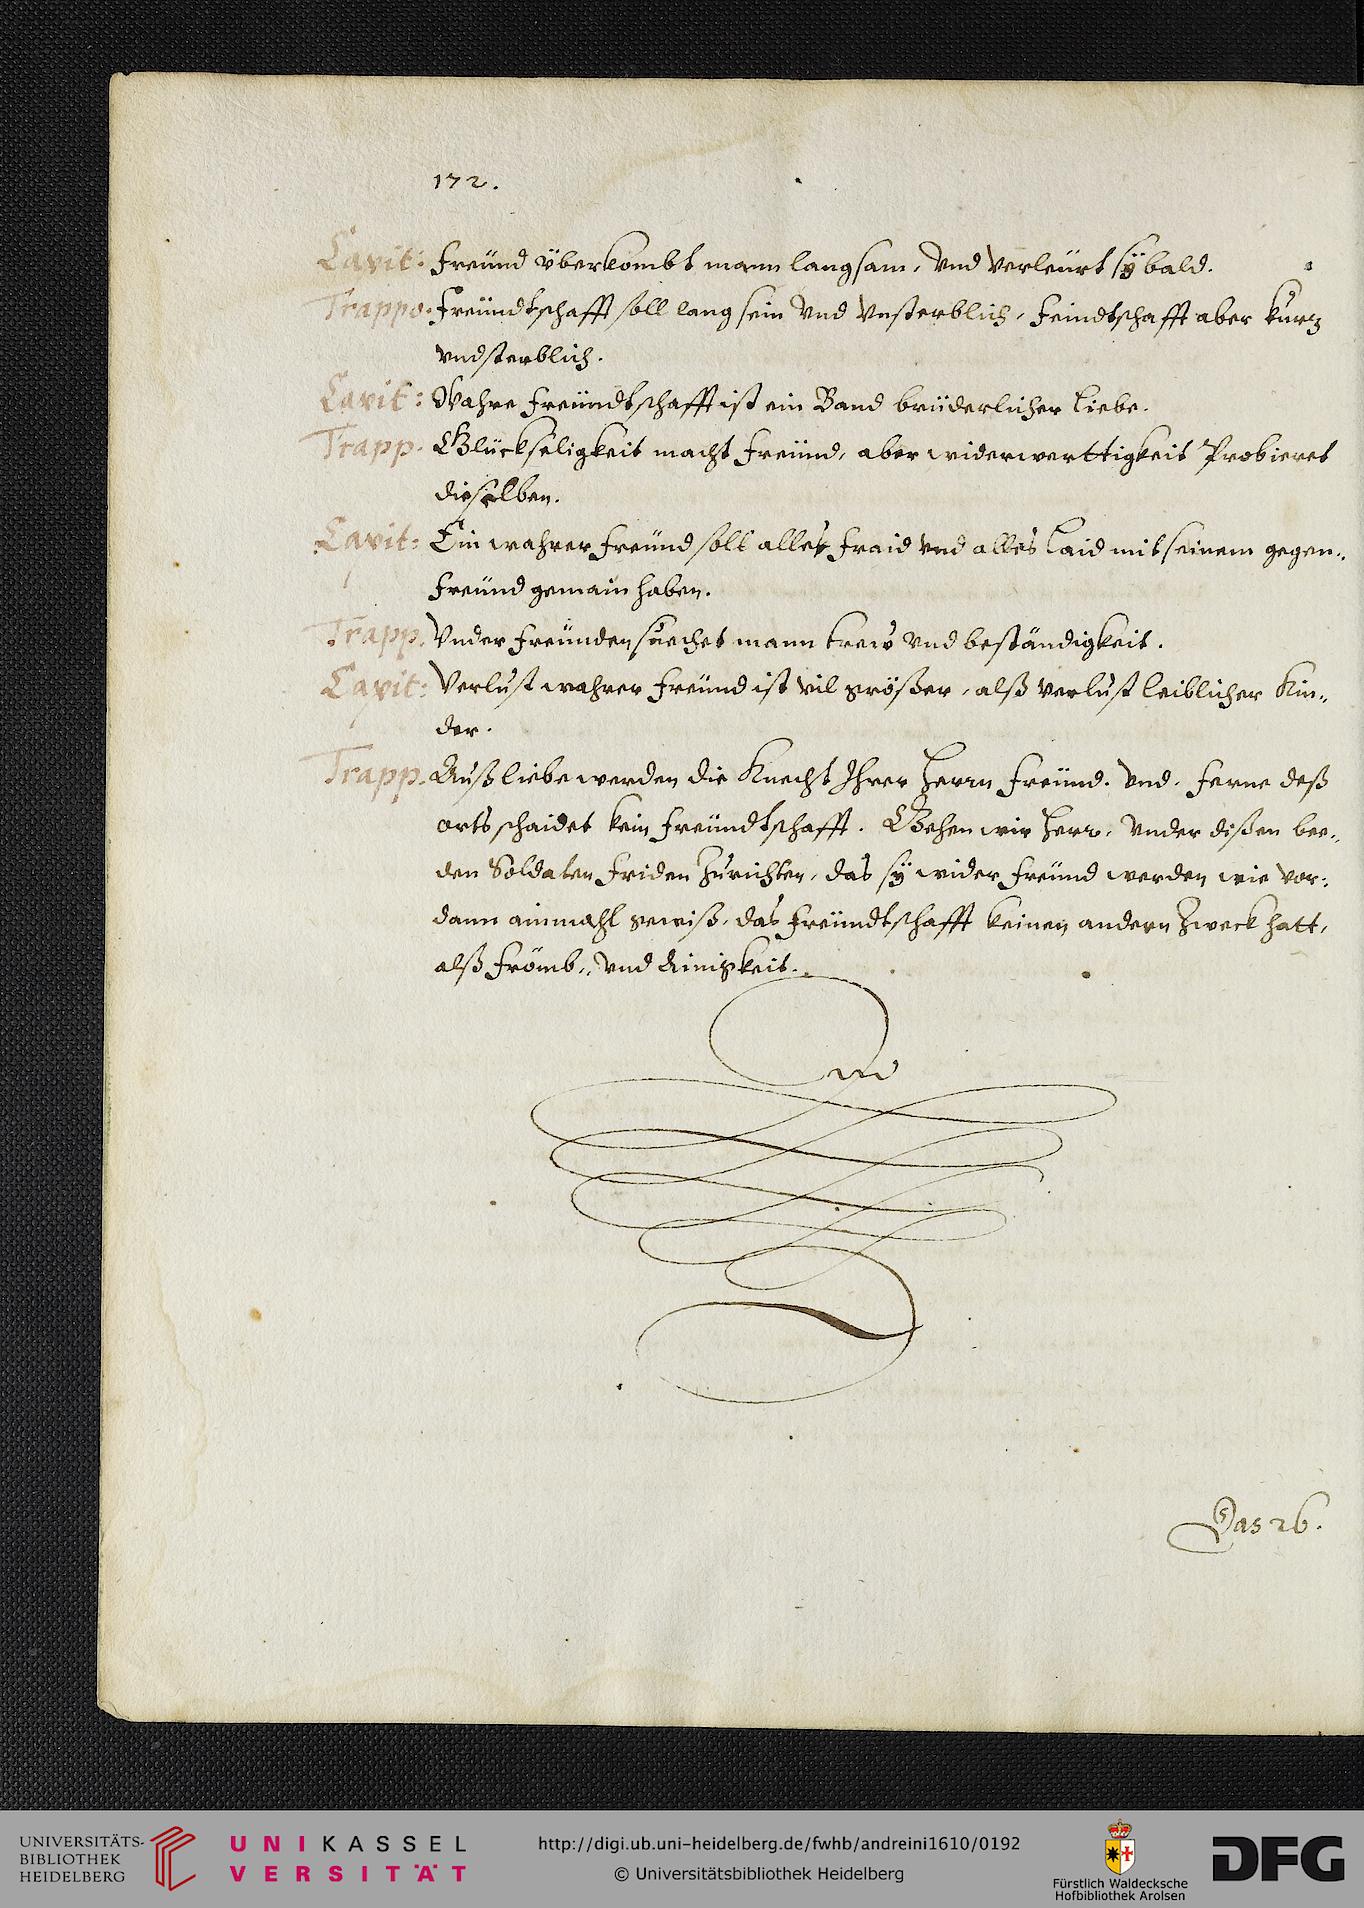 172.
Capit: Freünd überkombt mann langsam, Vnd Verleürt sÿ bald.
Trappo. Freündtschafft soll lang sein Vnd Vnsterblich, Feindtschafft aber kurz
vnd sterblich.
Capit: Wahre Freündtschafft ist ein Band brüderlicher Liebe.
Trapp. Glückseligkeit macht Freünd, aber widerwerttigkeit Probieret
dieselben.
Capit: Ein wahrer Freünd soll alles Fraid vnd alles Laid mit seinem gegen„
Freünd gemain haben.
Trapp. Vnder Freünden suechet mann trew vnd beständigkeit.
Capit: Verlust wahrer Freünd ist vil größer, alß Verlust leiblicher Kin„
der.
Trapp. Auß liebe werden die Knecht Ihrer Herrn Freünd. Vnd, Ferne deß
orts schaidet kein Freündtschafft. Gehen wir Herr, Vnder dißen bee„
den Soldaten Friden Zurichten, das sÿ wider Freünd werden wie vor:
dann ainmahl gewiß, das Freündtschafft keinen andern Zweck hatt,
alß Frömb„ Vnd Ainigkeit.
End
Das 26.
UNIVERSITÄTS-
BIBLIOTHEK
HEIDELBERG
UNIKASSEL
VERSITÄT
http://digi.ub.uni-heidelberg.de/fwhb/andreini1610/0192
© Universitätsbibliothek Heidelberg
Fürstlich Waldecksche
Hofbibliothek Arolsen
DFG